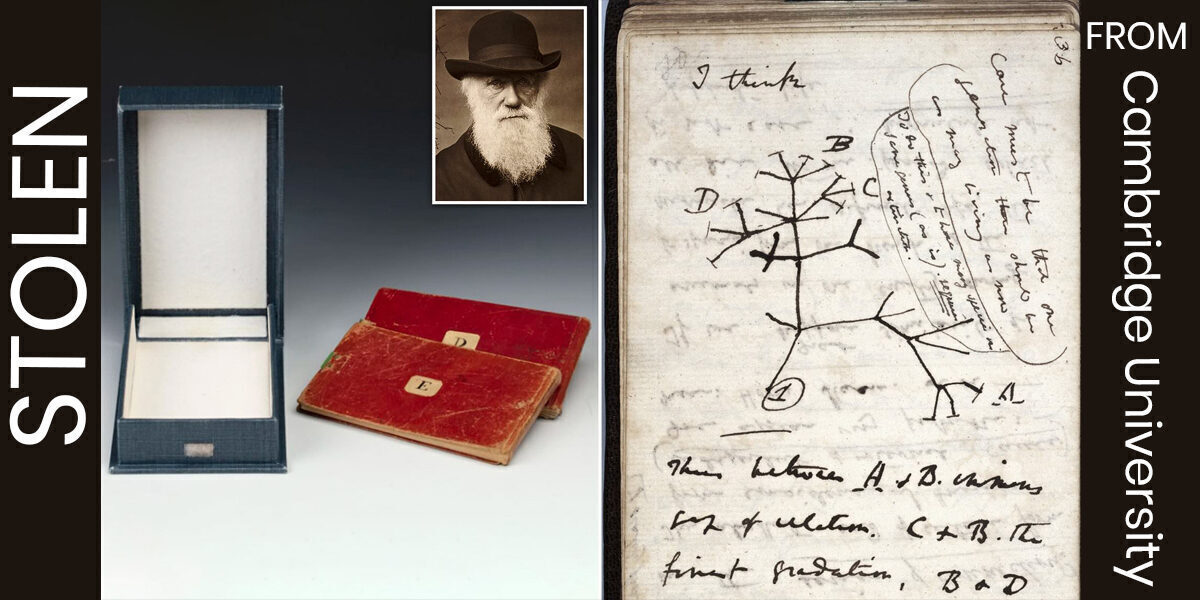 STOLEN
D
E
FROM
Cambridge University
36
I think
Case must be that one
generation then should be
as many living as now
To do this & to have many species in
same genus (as is). requires
extinction.
B
C
D
A
1
Thus between A & B. immense
gap of relation. C & B. the
finest gradation, B & D